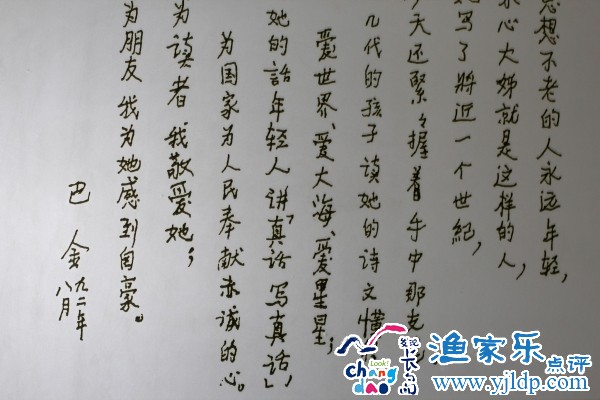 思想不老的人永远年轻,
冰心大姊就是这样的人,
她写了將近一个世纪,
今天还緊々握着手中那支
几代的孩子读她的诗文懂
愛世界、愛大海、愛星星;
她的話年轻人讲“真话、写真话”,
为国家为人民奉献赤诚的心。
为读者我敬愛她;
为朋友我为她感到自豪。
巴金
九二年
八月
Look!
chang
dao
发现长岛
渔家乐点评
www.yjldp.com